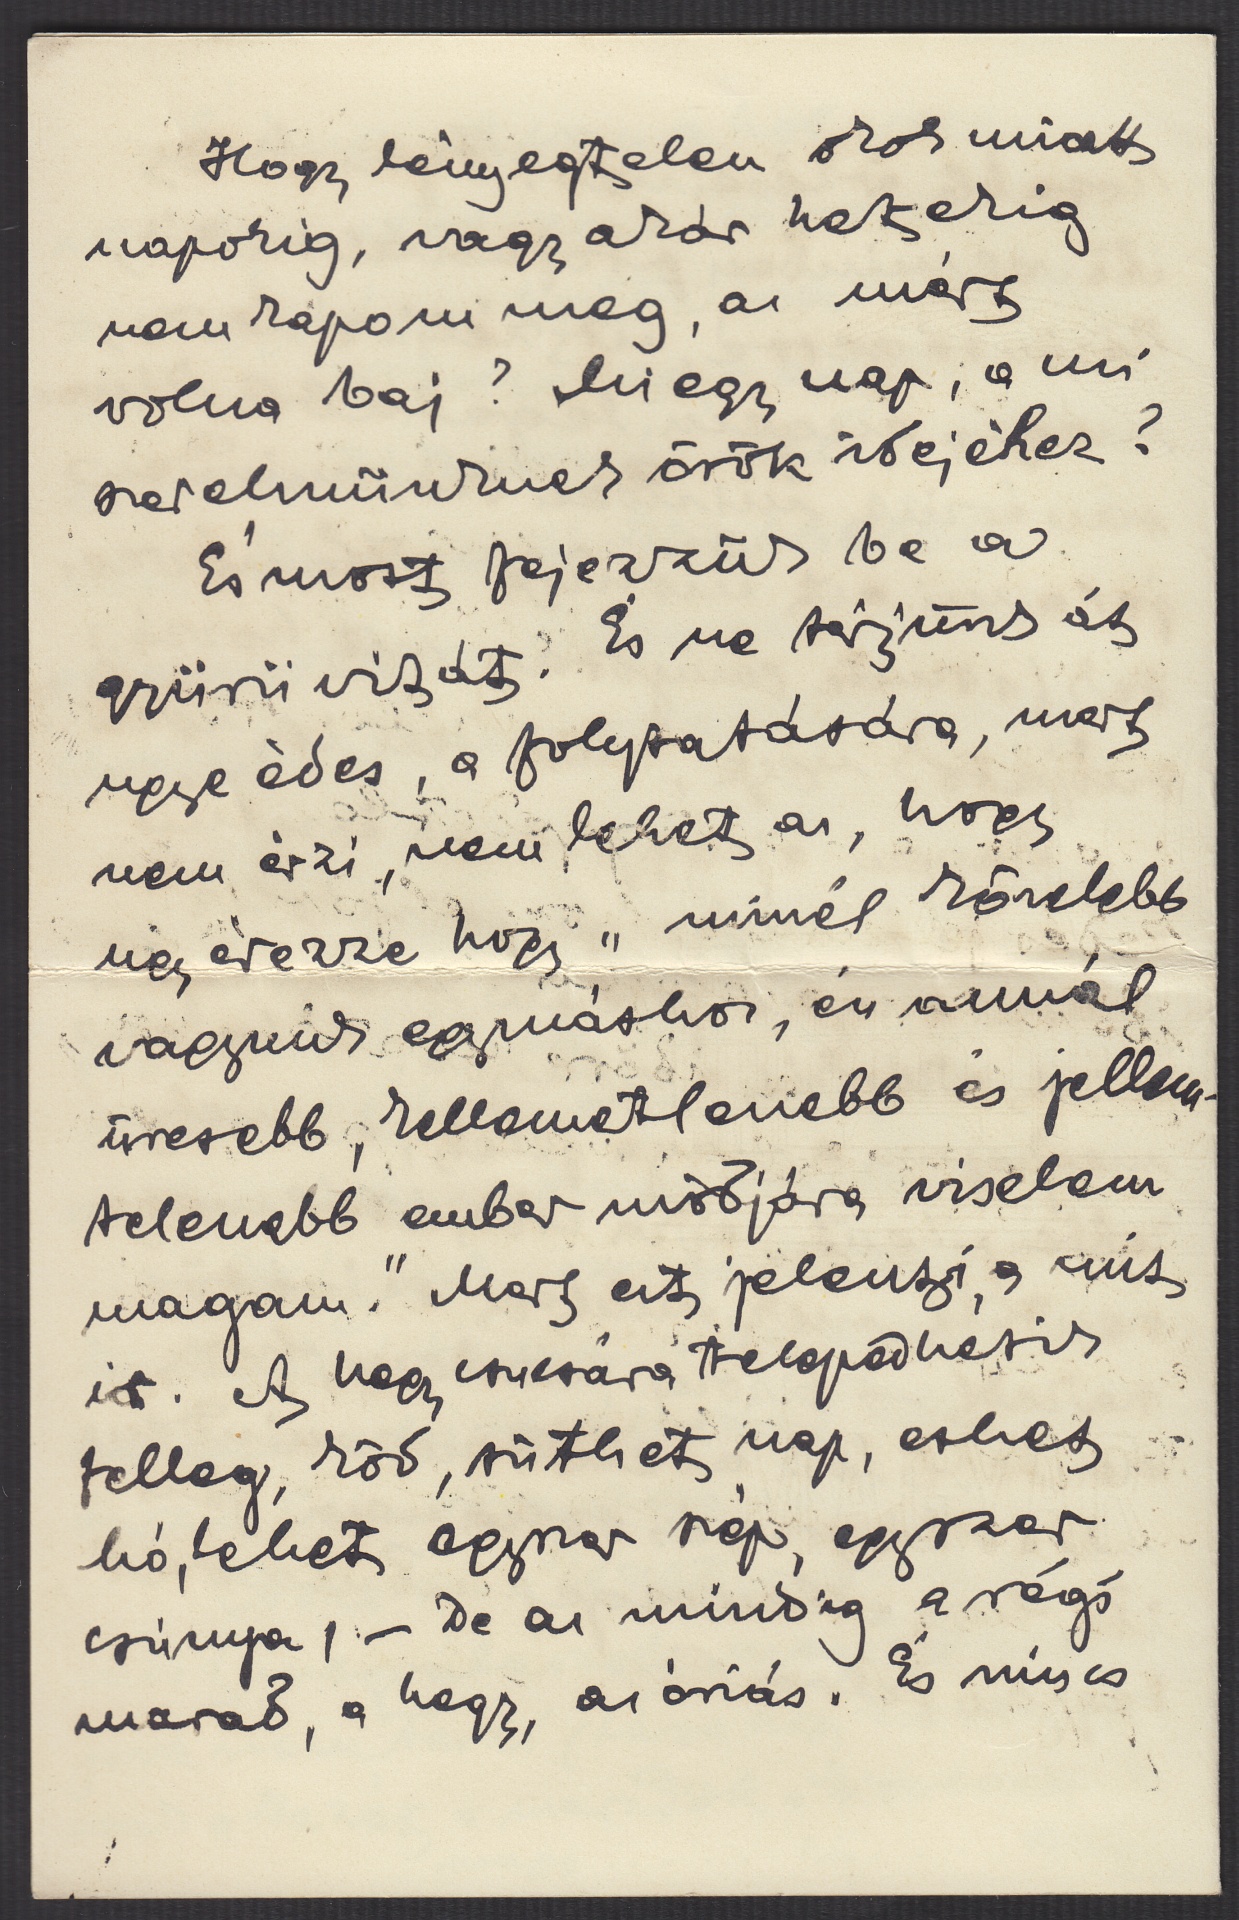 Hogy lényegtelen okok miatt
napokig, vagy akár hetekig
nem kapom meg, az miért
volna baj? Mi egy nap, a mi
szerelmünknek örök idejéhez?
És most fejezzük be a
gyűrű vitát. És ne térjünk át
ugye édes, a folytatására, mert
nem érzi, nem lehet az, hogy
úgy érezze hogy „minél közelebb
vagyunk egymáshoz, én annál
üresebb, kellemetlenebb és jellem-
telenebb ember módjára viselem
magam." Mert ezt jelenti, a mit
ír. A hegy csucsára telepedhetik
felleg, köd, süthet nap, eshet
hó, lehet egyszer szép, egyszer
csúnya, – De az mindig a régi
marad, a hegy, az óriás. És nincs